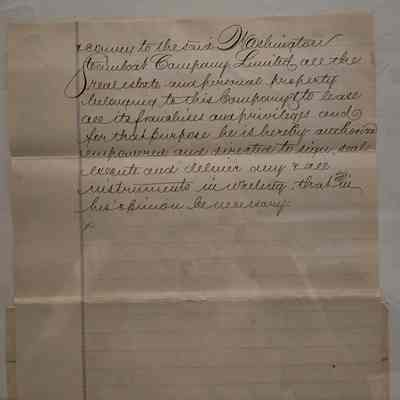 & convey to the said Washington
Steamboat Company, Limited, all the
real estate and personal property
belonging to this Company & to lease
all its franchises and privileges and
for that purpose he is hereby authorized
empowered and directed to sign, seal
execute and deliver any & all
instruments in writing that in
his opinion be necessary.